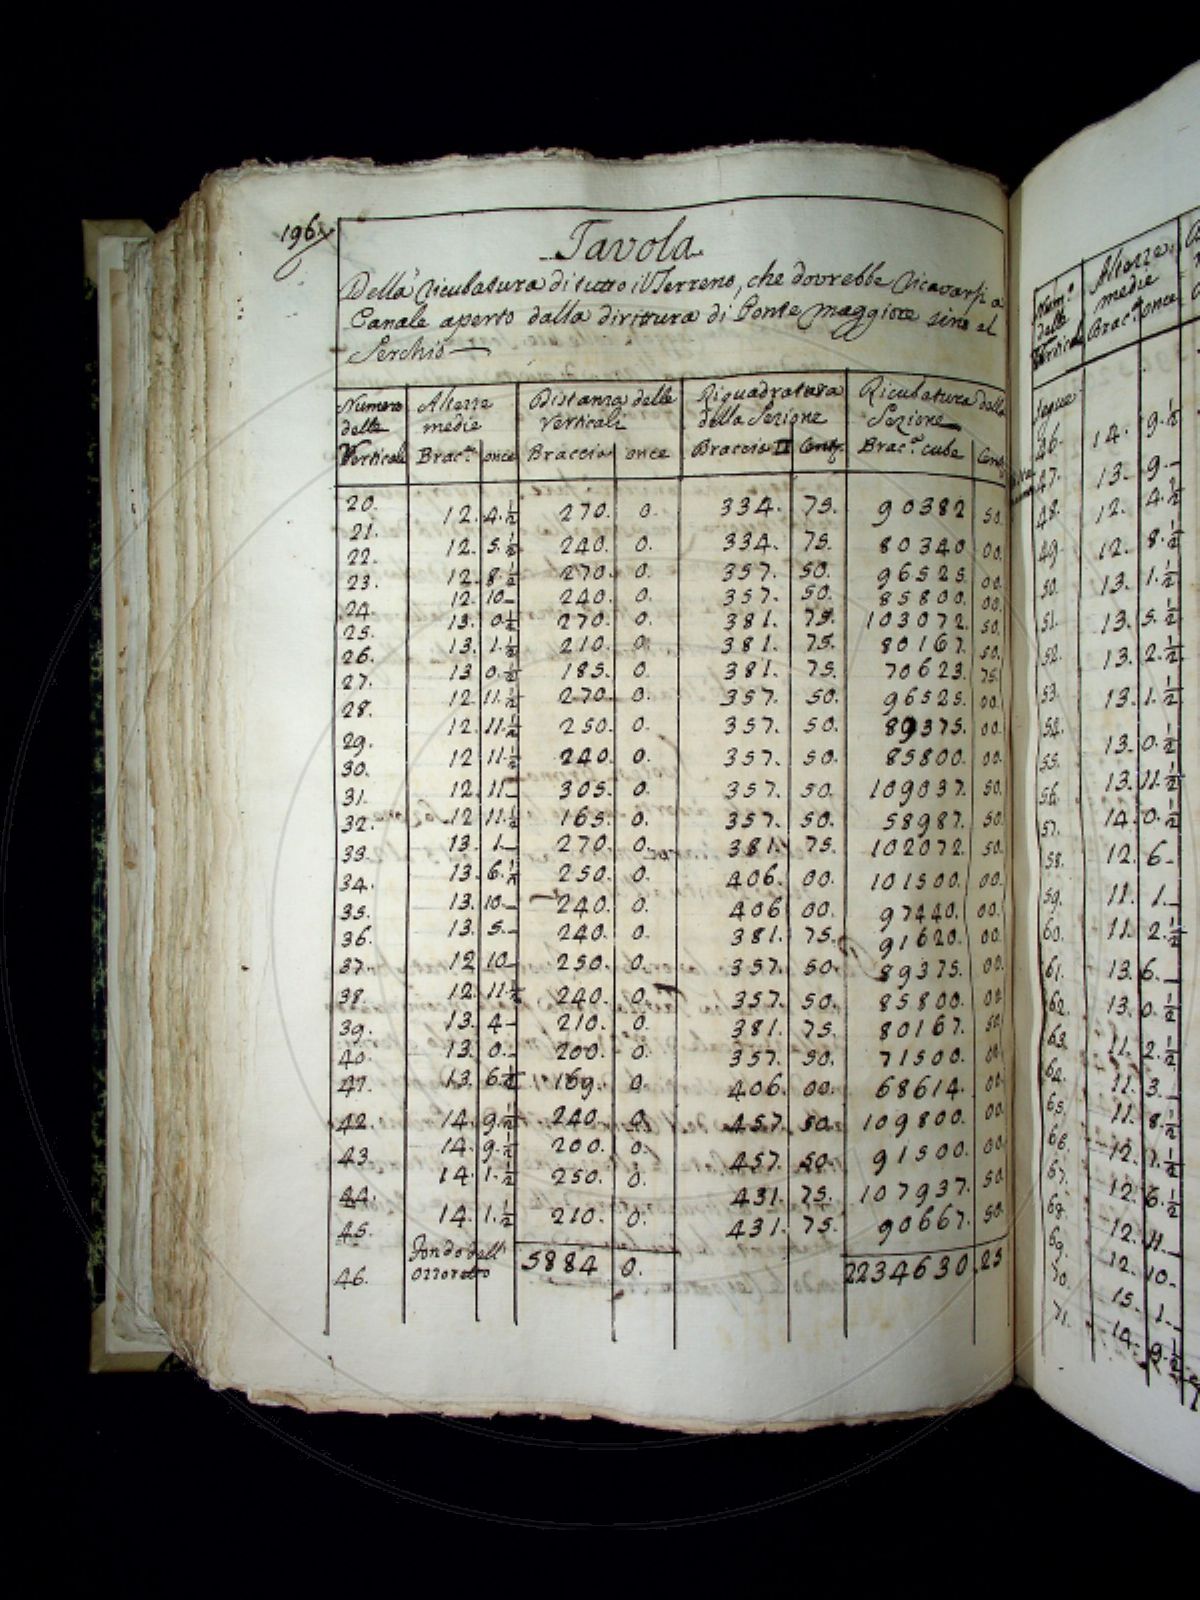 196
Tavola
Della Ricubatura di tutto il Terreno, che dovrebbe Ricavarsi a
Canale aperto dalla dirittura di Ponte maggiore sino al
Serchio
Numero delle Verticali | Altezze medie Brac. once | Distanza delle Verticali Braccia once | Riquadratura della Sezione Braccia □ Cent. | Ricubatura della Sezione Brac. cube Cent.
20.
12. 4.½ 270. 0. 334. 75. 90382 50.
21.
12. 5.½ 240. 0. 334. 75. 80340 00.
22.
12. 8.½ 270. 0. 357. 50. 96525. 00.
23.
12. 10 240. 0. 357. 50. 85800. 00.
24.
13. 0½ 270. 0. 381. 75. 103072. 50.
25.
13. 1.½ 210. 0. 381. 75. 80167. 50.
26.
13 0.½ 185. 0. 381. 75. 70623. 75.
27.
12 11.½ 270. 0. 357. 50. 96525. 00.
28.
12. 11.½ 250. 0. 357. 50. 89375. 00.
29.
12 11.½ 240. 0. 357. 50. 85800. 00.
30.
12. 11 305. 0. 357. 50. 109037. 50.
31.
12 11.½ 165. 0. 357. 50. 58987. 50.
32.
13. 1. 270. 0. 381. 75. 102072. 50.
33.
13. 6.½ 250. 0. 406. 00. 101500. 00.
34.
13. 10 240. 0. 406 00. 97440. 00.
35.
13. 5. 240. 0. 381. 75. 91620. 00.
36.
12 10 250. 0. 357. 50. 89375. 00.
37.
12 11.½ 240. 0. 357. 50. 85800. 00.
38.
13. 4 210. 0. 381. 75. 80167. 50.
39.
13. 0. 200. 0. 357. 50. 71500. 00.
40.
13. 6½ 169. 0. 406. 00. 68614. 00.
41.
14. 9.½ 240. 0. 457. 50. 109800. 00.
42.
14. 9.½ 200. 0. 457. 50. 91500. 00.
43.
14. 1.½ 250. 0. 431. 75. 107937. 50.
44.
14. 1.½ 210. 0. 431. 75. 90667. 50.
45.
Fondo dell'
5884 0. 2234630.25
46.
Num. delle Verticali | Altezze medie Brac. once
segue
46.
14. 9.½
47.
13. 9.
48.
12. 4.½
49.
12. 8.½
50.
13. 1.½
51.
13. 5.½
52.
13. 2.½
53.
13. 1.½
54.
13. 0.½
55.
13. 11.½
56.
14. 0.½
57.
12. 6
58.
11. 1.
59.
11. 2.½
60.
13. 6.
61.
13. 0.½
62.
11. 2.½
63.
11. 3.
64.
11. 8.½
65.
12. 7.½
66.
12. 6.½
67.
12. 11.
68.
12. 10
69.
15. 1
70.
14. 9.½
71.